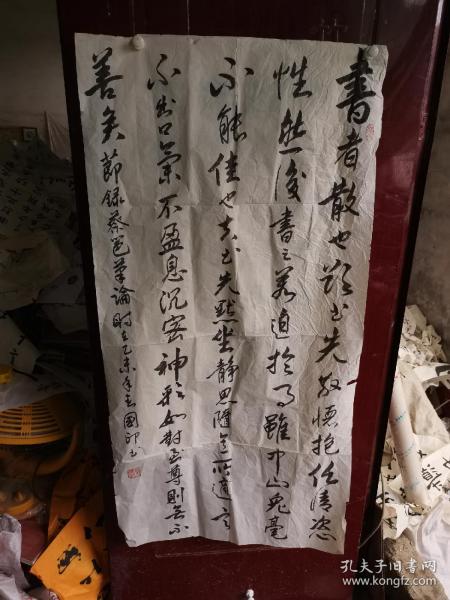 書者散也欲書先散懷抱任情恣
性然後書之若迫於事雖中山兔毫
不能佳也夫書先默坐靜思隨意所適言
不出口氣不盈息沉密神彩如對至尊則無不
善矣 節錄蔡邕筆論時在乙未年
孔夫子旧书网
www.kongfz.com